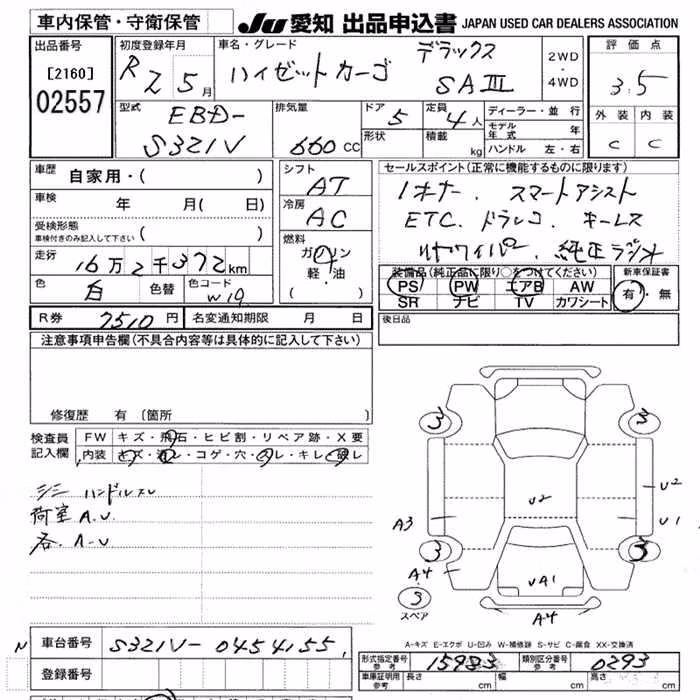 車内保管・守衛保管
JU 愛知 出品申込書 JAPAN USED CAR DEALERS ASSOCIATION
出品番号
[2160]
02557
初度登録年月
R2 5月
車名・グレード
ハイゼットカーゴ
デラックス
SAⅢ
2WD
・
4WD
評価点
3.5
外装 内装
C C
型式
EBD-
S321V
排気量
660 CC
ドア 5
形状
定員 4人
積載 kg
ディーラー・並行
モデル年式 年
ハンドル 左・右
車歴 自家用・( )
車検 年 月( 日)
受検形態
車検付きのみ記入して下さい ( )
走行 16万2千372km
色 白 色替 色コード W19
R券 7510円 名変通知期限 月 日
シフト
AT
冷房
AC
燃料
ガソリン
軽・油
( )
セールスポイント(正常に機能するものに限ります)
1オーナー. スマートアシスト
ETC. ドラレコ キーレス
リヤワイパー. 純正ラジオ
装備品(純正品に限り○をつけてください)
PS PW エアB AW
SR ナビ TV カワシート
新車保証書
有・無
後日品
注意事項申告欄(不具合内容等は具体的に記入して下さい)
修復歴 有 [箇所
検査員
記入欄
FW キズ・飛石・ヒビ割・リペア跡・X要
内装 キズ・汚レ・コゲ・穴・スレ・キレ・破レ
シミ ハンドルスレ
荷室A.U.
各.A-U
3
3
3
3
U2
U2
U1
A3
A4
UA1
A4
3
スペア
A-キズ E-エクボ U-凹み W-補修跡 S-サビ C-腐食 XX-交換済
車台番号 S321V-0454155
登録番号
型式指定番号
参考
15983
類別区分番号
参考
0293
車庫証明用
参考
長さ cm 幅 cm 高さ cm